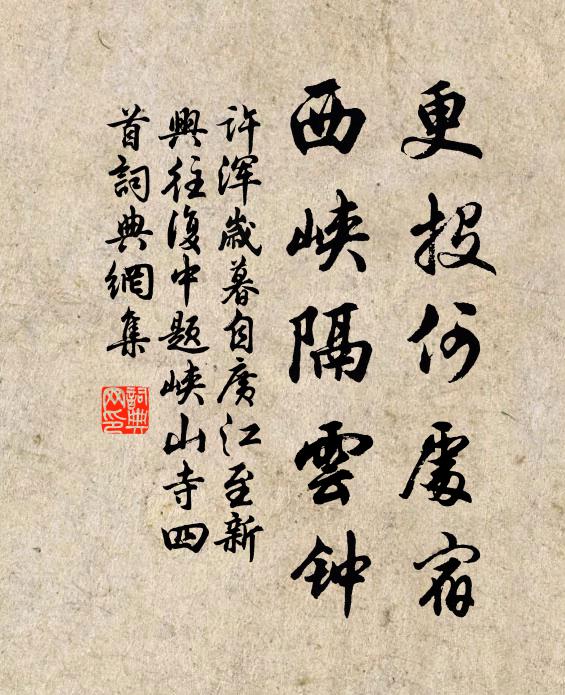 更投何處宿
西峡隔雲钟
许浑歲暮自廣江至新
興往復中題峡山寺四
首詞典網集
詞典
网印